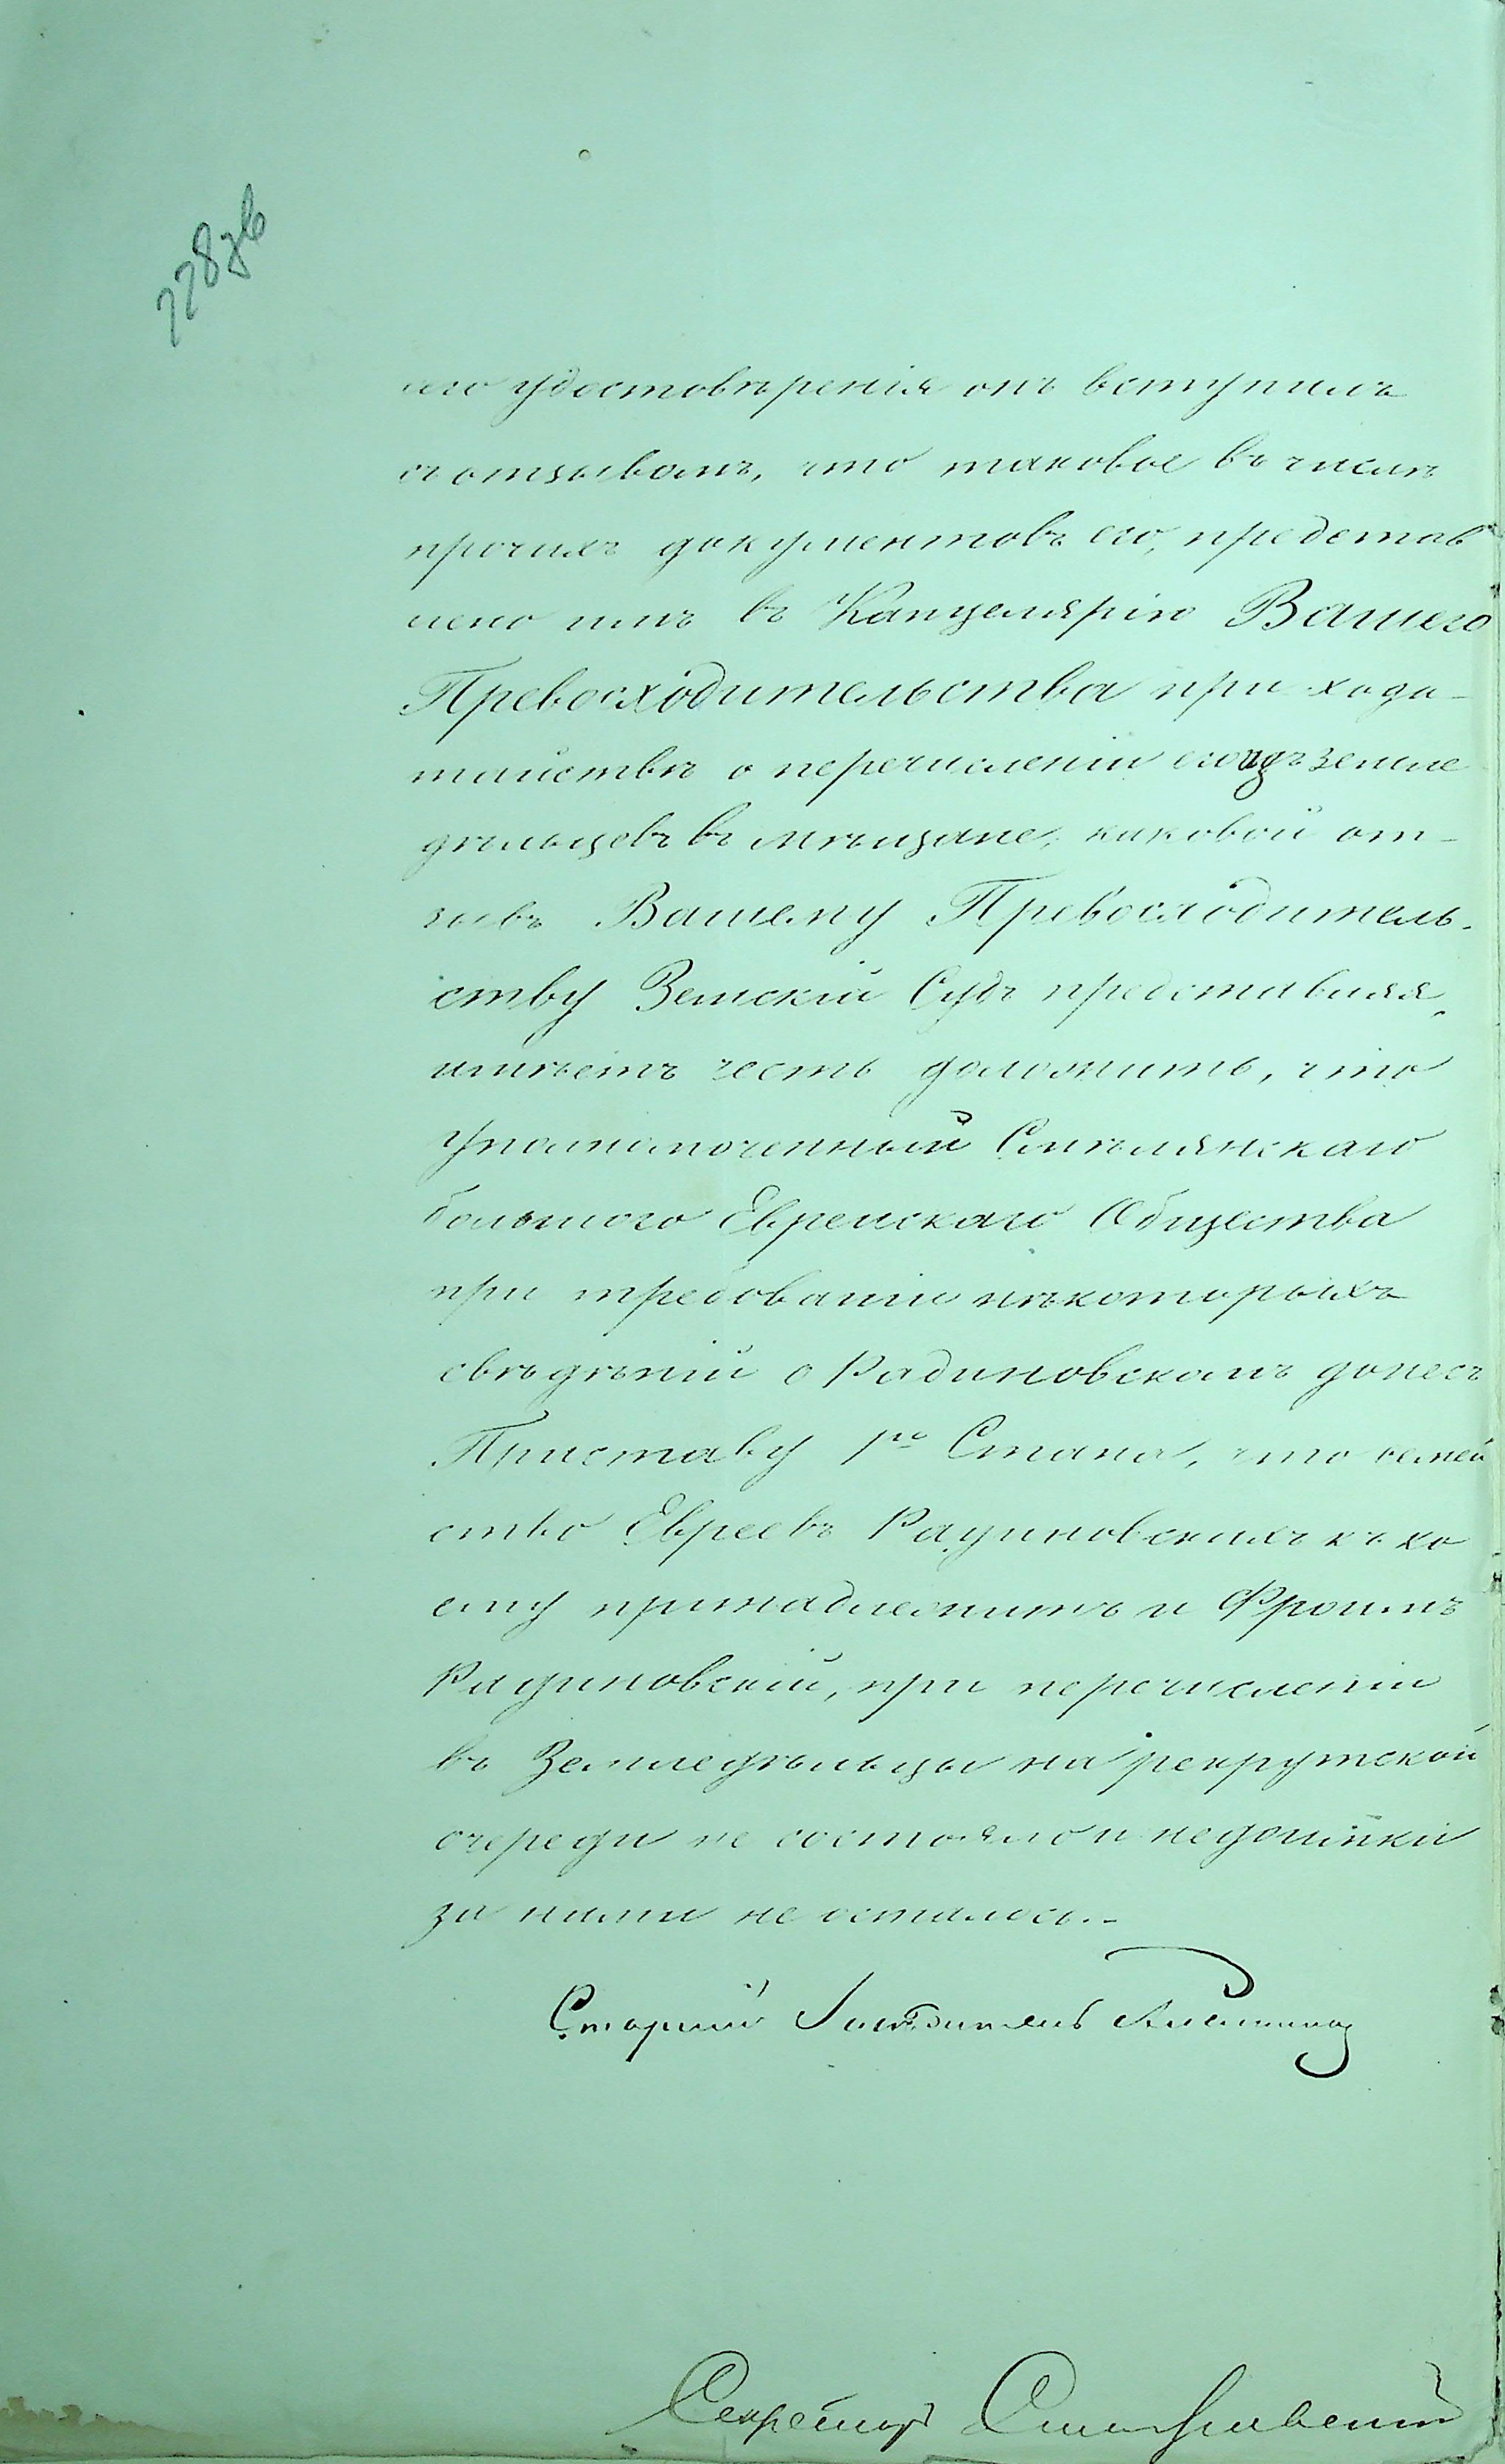 228 зв
его удостовѣренія онъ вступилъ
съ отзывомъ, что таковое въ числѣ
прочихъ документовъ его, представ
лено имъ въ Канцелярію Вашего
Превосходительства при хода-
тайствѣ о перечисленіи его изъ земле
дѣльцевъ въ мѣщане, каковой от-
зывъ Вашему Превосходитель-
ству Земскій Судъ представляя,
имѣетъ честь доложить, что
уполномоченный Смѣлянскаго
большого Еврейскаго Общества
при требованіи нѣкоторыхъ
свѣдѣній о Радиновскомъ донесъ
Приставу 1го Стана, что семей
ство Евреевъ Радиновскихъ къ ко
ему принадлежитъ и Фроимъ
Радиновскій, при перечисленіи
въ Земледѣльцы на рекрутской
очереди не состояло и недоимки
за ними не осталось.-
Старшій Засѣдатель
Секретарь